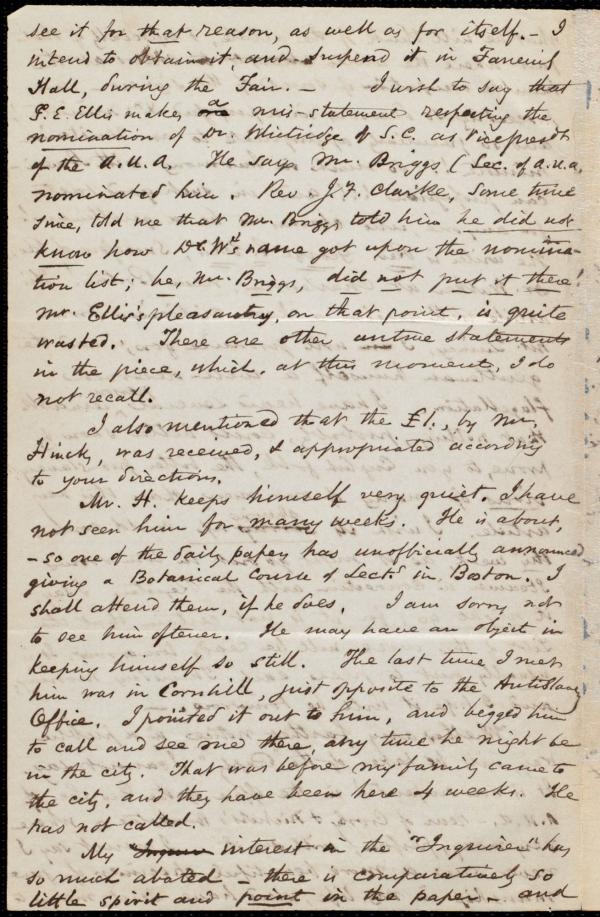 see it for that reason, as well as for itself. - I
intend to obtain it, and suspend it in Faneuil
Hall, during the Fair. - I wish to say that
G. E. Ellis makes a mis-statement respecting the
nomination of Dr. Whitridge of S.C. as Vice presdt
of the A.U.A. He says Mr. Briggs (Sec. of A.U.A.
nominated him. Rev. J. F. Clarke, some time
since, told me that Mr. Briggs told him he did not
know how Dr. W's name got upon the nomina-
tion list; he, Mr. Briggs, did not put it there!
Mr. Ellis's pleasantry, on that point, is quite
wasted. There are other untrue statements
in the piece, which, at this moment, I do
not recall.
I also mentioned that the £1., by Mr.
Hincks, was received, & appropriated according
to your directions.
Mr. H. keeps himself very quiet. I have
not seen him for many weeks. He is about,
- so one of the daily papers has unofficially announced
giving a Botanical Course of Lects. in Boston. I
shall attend them, if he does. I am sorry not
to see him oftener. He may have an object in
keeping himself so still. The last time I met
him was in Cornhill, just opposite to the Antislavy
Office. I pointed it out to him, and begged him
to call and see me there, any time he might be
in the city. That was before my family came to
the city, and they have been here 4 weeks. He
has not called.
My interest in the "Inquirer" has
so much abated - there is comparatively so
little spirit and point in the paper - and